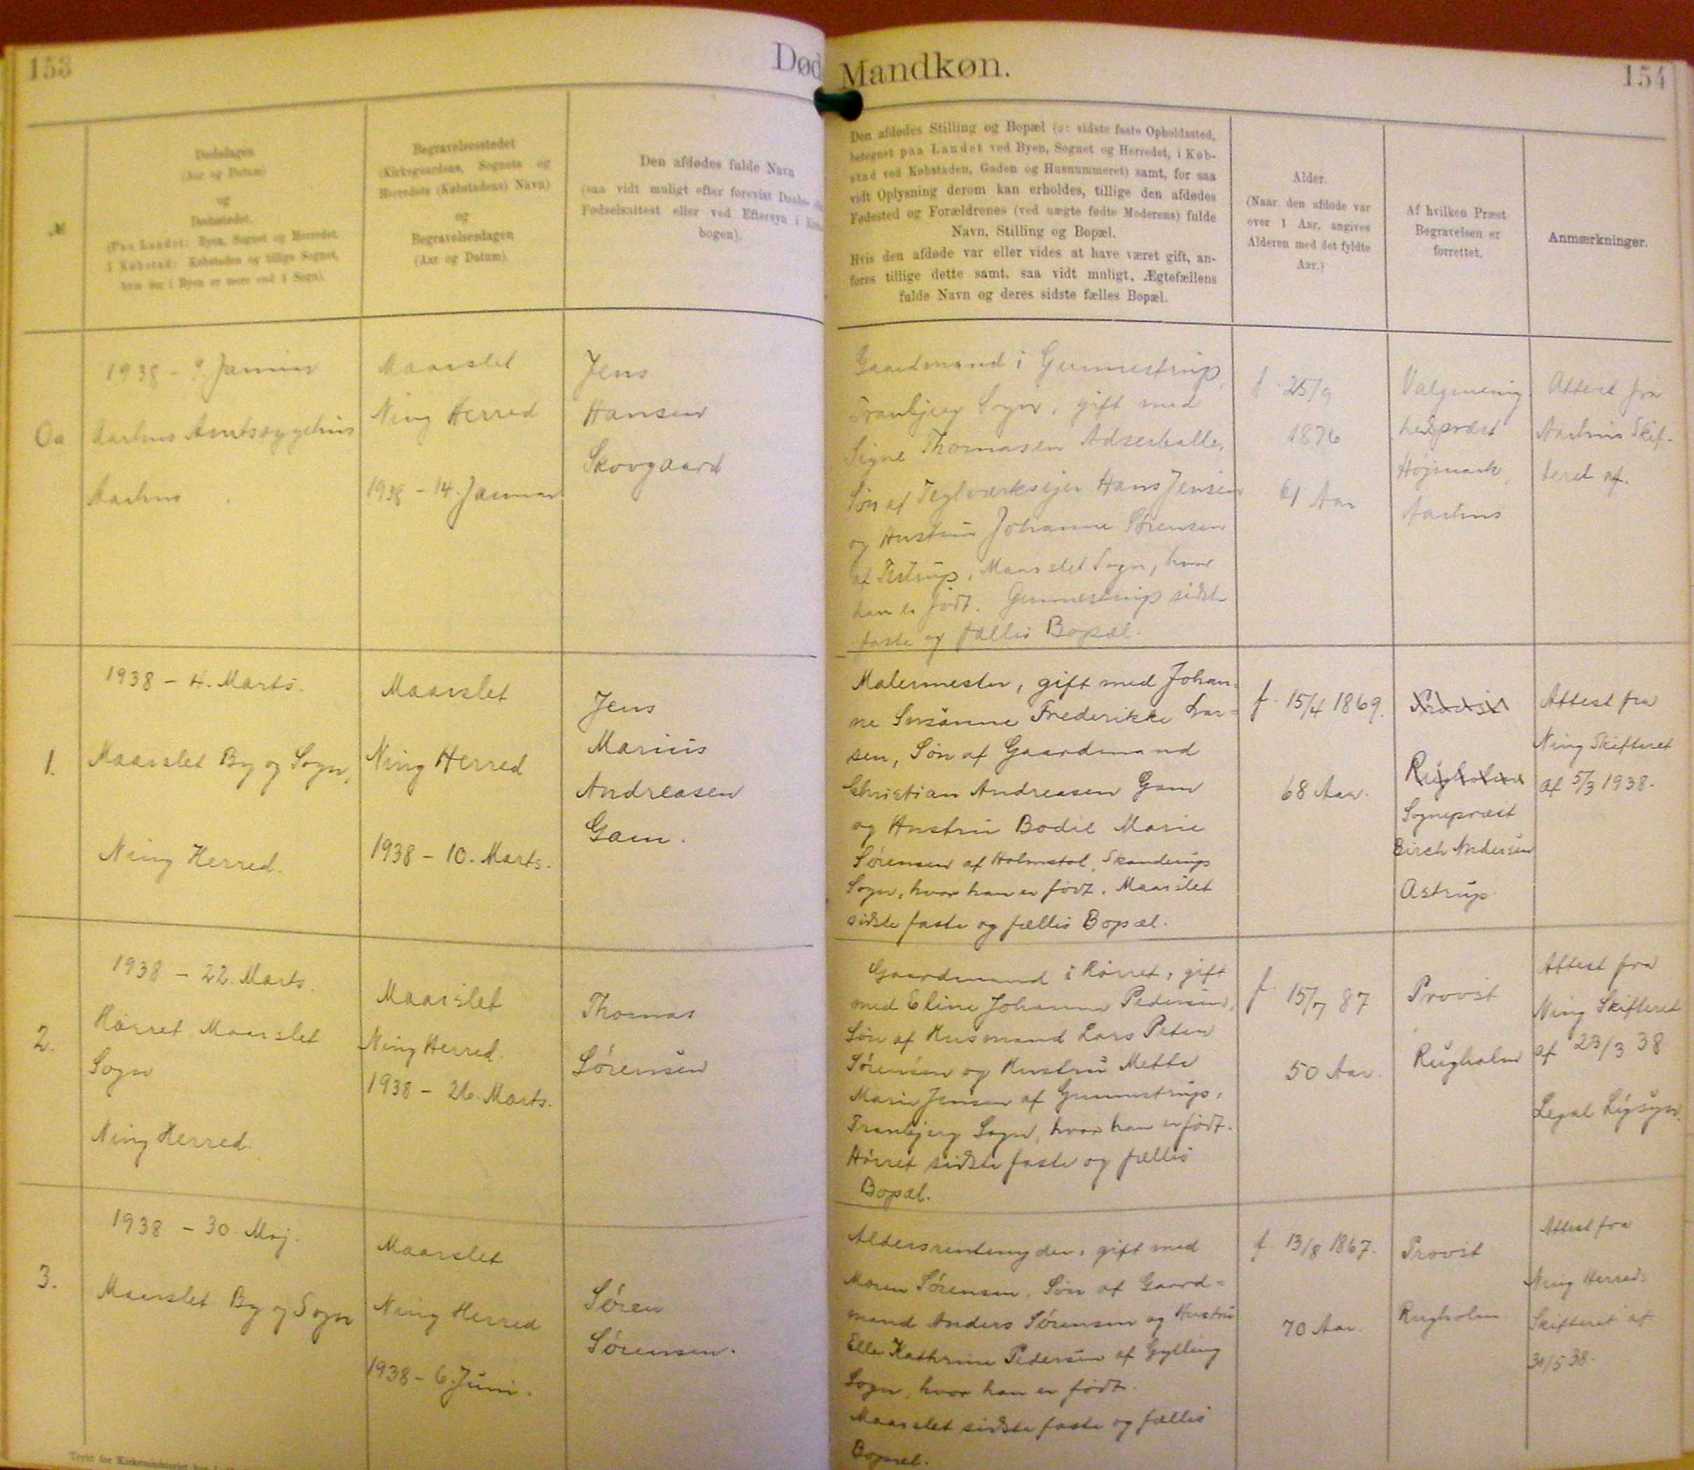 153
Død
Mandkøn.
154
№
Dødsdagen
(Aar og Datum)
og
Dødsstedet.
(Paa Landet: Byen, Sognet og Herredet,
i Købstad: Købstaden og tillige Sognet,
hvis der i Byen er mere end 1 Sogn).
Begravelsesstedet
(Kirkegaardens, Sognets og
Herredets (Købstadens) Navn)
og
Begravelsesdagen
(Aar og Datum).
Den afdødes fulde Navn
(saa vidt muligt efter forevist Daabs-
Fødselsattest eller ved Eftersyn i
bogen).
Den afdødes Stilling og Bopæl (ɔ: sidste faste Opholdssted,
betegnet paa Landet ved Byen, Sognet og Herredet, i Køb-
stad ved Købstaden, Gaden og Husnummeret) samt, for saa
vidt Oplysning derom kan erholdes, tillige den afdødes
Fødested og Forældrenes (ved uægte fødte Moderens) fulde
Navn, Stilling og Bopæl.
Hvis den afdøde var eller vides at have været gift, an-
føres tillige dette samt, saa vidt muligt, Ægtefællens
fulde Navn og deres sidste fælles Bopæl.
Alder.
(Naar den afdøde var
over 1 Aar, angives
Alderen med det fyldte
Aar.)
Af hvilken Præst
Begravelsen er
forrettet.
Anmærkninger.
0a
1938 - Januar
Aarhus Amtssygehus
Aarhus
Maarslet
Ning Herred
1938 - 14. Januar
Jens
Hansen
Skovgaard
Gaardmand i Gunnestrup,
Tranbjerg Sogn, gift med
Signe Thomasen Adserballe,
Søn af Teglværksejer Hans Jensen
og Hustru Johanne Sørensen
af Testrup, Maarslet Sogn, hvor
han er født. Gunnestrup sidste
faste og fælles Bopæl.
f. 25/9
1876
61 Aar
Valgmenig-
hedspræst
Højmark,
Aarhus
Attest fra
Aarhus Skif-
teret af.
1.
1938 - 4. Marts.
Maarslet By og Sogn,
Ning Herred.
Maarslet
Ning Herred
1938 - 10. Marts.
Jens
Marius
Andreasen
Gam.
Malermester, gift med Johan-
ne Susanne Frederikke Lar-
sen, Søn af Gaardmand
Christian Andreasen Gam
og Hustru Bodil Marie
Sørensen af Holmstol, Skanderup
Sogn, hvor han er født. Maarslet
sidste faste og fælles Bopæl.
f. 15/4 1869.
68 Aar.
Provst
Rugholm
Sognepræst
Birch Andersen
Astrup
Attest fra
Ning Skifteret
af 5/3 1938.
2.
1938 - 22. Marts.
Hørret Maarslet
Sogn
Ning Herred.
Maarslet
Ning Herred.
1938 - 26. Marts.
Thomas
Sørensen
Gaardmand i Hørret, gift
med Eline Johanne Pedersen,
Søn af Husmand Lars Peter
Sørensen og Hustru Mette
Marie Jensen af Gunnestrup,
Tranbjerg Sogn, hvor han er født.
Hørret sidste faste og fælles
Bopæl.
f. 15/7 87
50 Aar.
Provst
Rugholm
Attest fra
Ning Skifteret
af 23/3 38
Legal Ligsyn.
3.
1938 - 30. Maj.
Maarslet By og Sogn
Maarslet
Ning Herred
1938 - 6. Juni.
Søren
Sørensen.
Aldersrentenyder, gift med
Maren Sørensen, Søn af Gaard-
mand Anders Sørensen og Hustru
Elle Kathrine Pedersen af Gylling
Sogn, hvor han er født.
Maarslet sidste faste og fælles
Bopæl.
f. 13/8 1867.
70 Aar.
Provst
Rugholm
Attest fra
Ning Herreds
Skifteret af
30/5 38.
Trykt for Kirkeministeriet